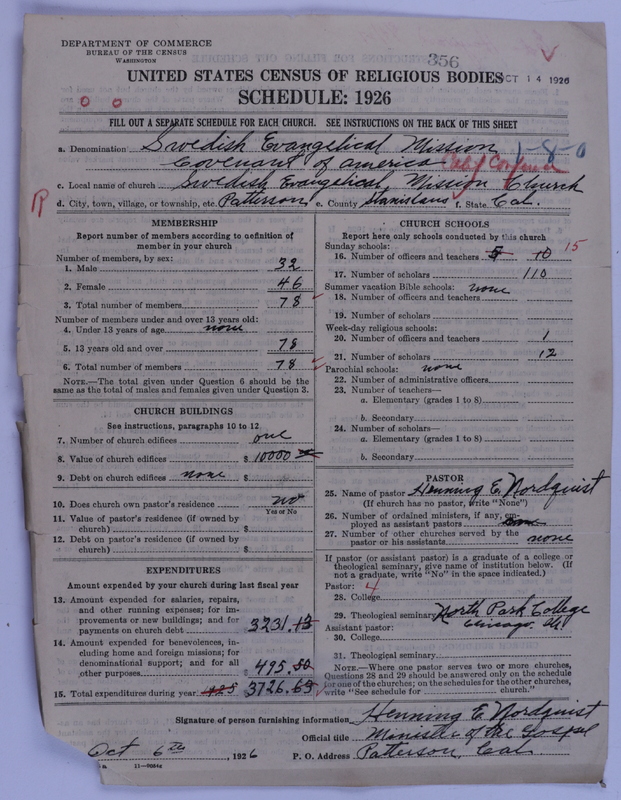 DEPARTMENT OF COMMERCE
BUREAU OF THE CENSUS
WASHINGTON
356
UNITED STATES CENSUS OF RELIGIOUS BODIES
OCT 14 1926
SCHEDULE: 1926
FILL OUT A SEPARATE SCHEDULE FOR EACH CHURCH. SEE INSTRUCTIONS ON THE BACK OF THIS SHEET
a. Denomination Swedish Evangelical Mission 1-8-0
Covenant of America
c. Local name of church Swedish Evangelical Mission Church
d. City, town, village, or township, etc. Patterson e. County Stanislaus f. State Cal.
MEMBERSHIP
Report number of members according to definition of
member in your church
Number of members, by sex:
1. Male 32
2. Female 46
3. Total number of members 78
Number of members under and over 13 years old:
4. Under 13 years of age none
5. 13 years old and over 78
6. Total number of members 78
NOTE.—The total given under Question 6 should be
same as the total of males and females given under Question 3.
CHURCH BUILDINGS
See instructions, paragraphs 10 to 12
7. Number of church edifices one
8. Value of church edifices $ 10000
9. Debt on church edifices none $
10. Does church own pastor's residence no
Yes or No
11. Value of pastor's residence (if owned by
church) $
12. Debt on pastor's residence (if owned by
church) $
EXPENDITURES
Amount expended by your church during last fiscal year
13. Amount expended for salaries, repairs,
and other running expenses; for im-
provements or new buildings; and for
payments on church debt 3231.13
14. Amount expended for benevolences, in-
cluding home and foreign missions; for
denominational support; and for all
other purposes $ 495.50
15. Total expenditures during year 495 3726.63
CHURCH SCHOOLS
Report here only schools conducted by this church
Sunday schools:
16. Number of officers and teachers 5 10 15
17. Number of scholars 110
Summer vacation Bible schools: none
18. Number of officers and teachers
19. Number of scholars
Week-day religious schools:
20. Number of officers and teachers 1
21. Number of scholars 12
Parochial schools: none
22. Number of administrative officers
23. Number of teachers—
a. Elementary (grades 1 to 8)
b. Secondary
24. Number of scholars—
a. Elementary (grades 1 to 8)
b. Secondary
PASTOR
25. Name of pastor Henning E. Nordquist
(If church has no pastor, write "None")
26. Number of ordained ministers, if any, em-
ployed as assistant pastors
27. Number of other churches served by the
pastor or his assistants none
If pastor (or assistant pastor) is a graduate of a college or
theological seminary, give name of institution below. (If
not a graduate, write "No" in the space indicated.)
Pastor: 4
28. College
29. Theological seminary North Park College
Chicago, Ill
Assistant pastor:
30. College
31. Theological seminary
NOTE.—Where one pastor serves two or more churches,
Questions 28 and 29 should be answered only on the schedule
for one of the churches; on the schedules for the other churches,
write "See schedule for church."
Signature of person furnishing information Henning E. Nordquist
Official title Minister of the Gospel
Oct 6th, 1926 P. O. Address Patterson, Cal
11—9084a